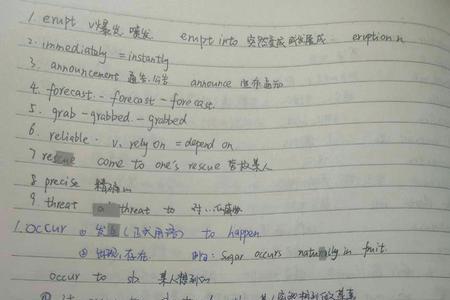 1. erupt v爆发, 喷发. erupt into 突然变成 或发展成. eruption.n
2. immediately = instantly
3. announcement 通告, 公告 announce 宣布
4. forecast. - forecast - forecast.
5. grab - grabbed - grabbed
6. reliable. v. rely on = depend on
7 rescue come to one's rescue 营救某人
8 precise 精确
9 threat a threat to 对...
1. occur ① 发 (正式用语) to happen
② 出现, 存在. Sugar occurs naturally in fruit.
occur to sb 某人想到